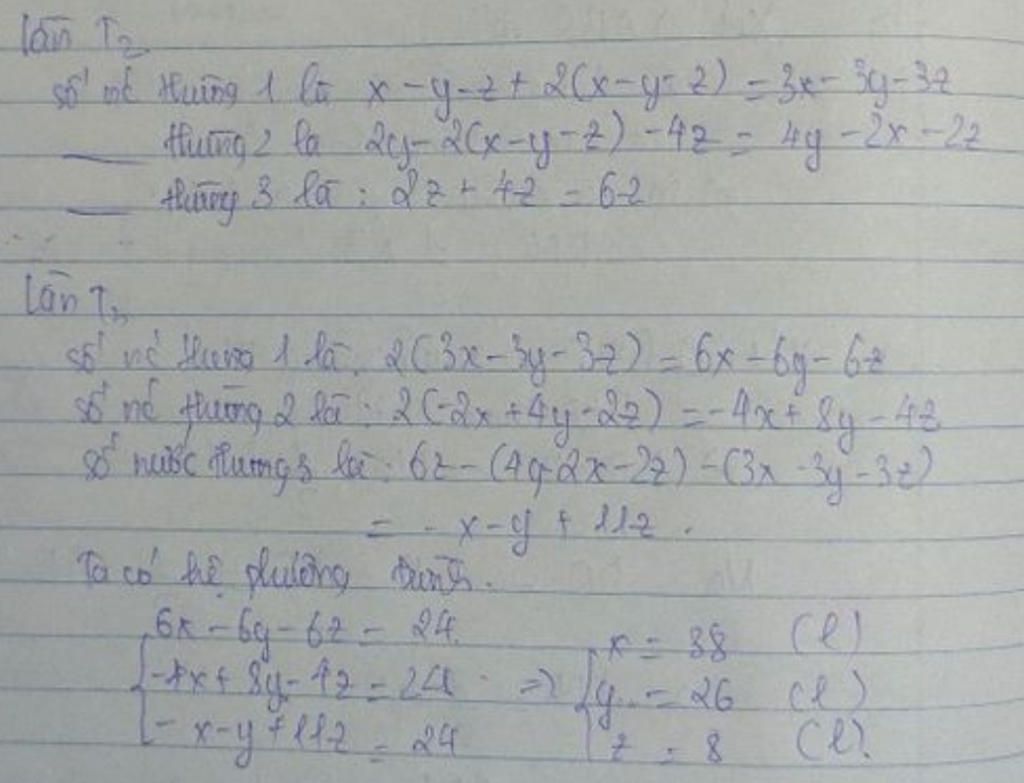 Lần T2
số nc thùng 1 là x - y - z + 2(x - y - z) = 3x - 3y - 3z
___ thùng 2 là 2y - 2(x - y - z) - 4z = 4y - 2x - 2z
___ thùng 3 là : 2z + 4z = 6z
Lần T3
số nc thùng 1 là. 2(3x - 3y - 3z) = 6x - 6y - 6z
số nc thùng 2 là : 2(-2x + 4y - 2z) = -4x + 8y - 4z
số nước thùng 3 là : 6z - (4y - 2x - 2z) - (3x - 3y - 3z)
= - x - y + 11z .
Ta có hệ phương trình.
6x - 6y - 6z = 24. x = 38 (l)
-4x + 8y - 4z = 24 => y = 26 (l)
- x - y + 11z = 24 z = 8 (l).